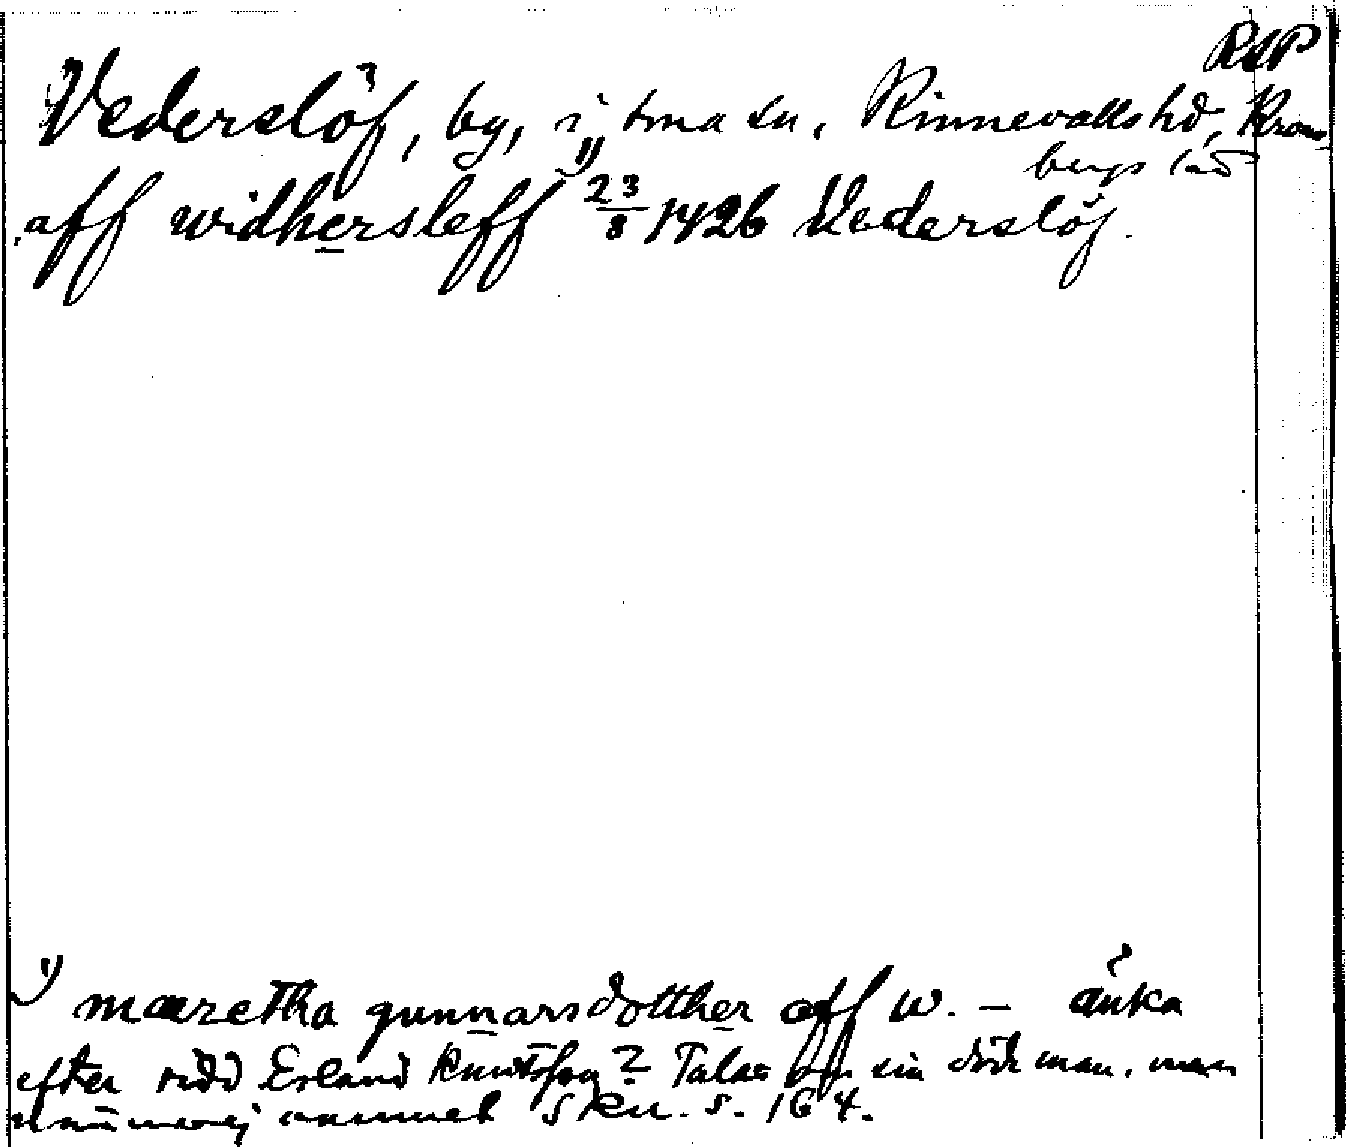 RAP
Vederslöf, by, i sma sn, Kinnevalls hd, Krono
bergs län
aff widhersleff 1) 23/8 1426 Vederslöf.
1) mæretha gunnarsdotther aff w. – änka
efter ridd Erland Knutsson? Talar om sin döde man, men
nämner ej namnet SRU. s. 164.